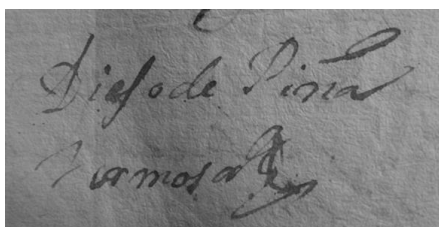 Diego de Piña
Hermosa